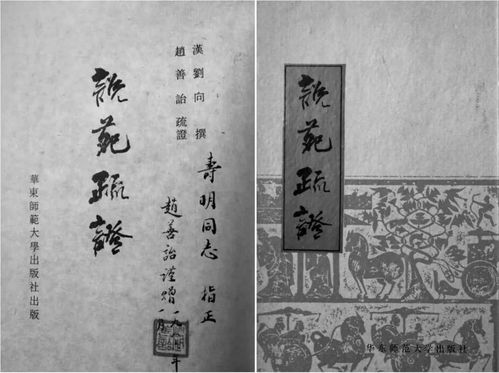 漢劉向撰
趙善詒疏證
說苑疏證
華東師範大學出版社出版
壽明同志 指正
趙善詒謹贈
說苑疏證
华东师范大学出版社